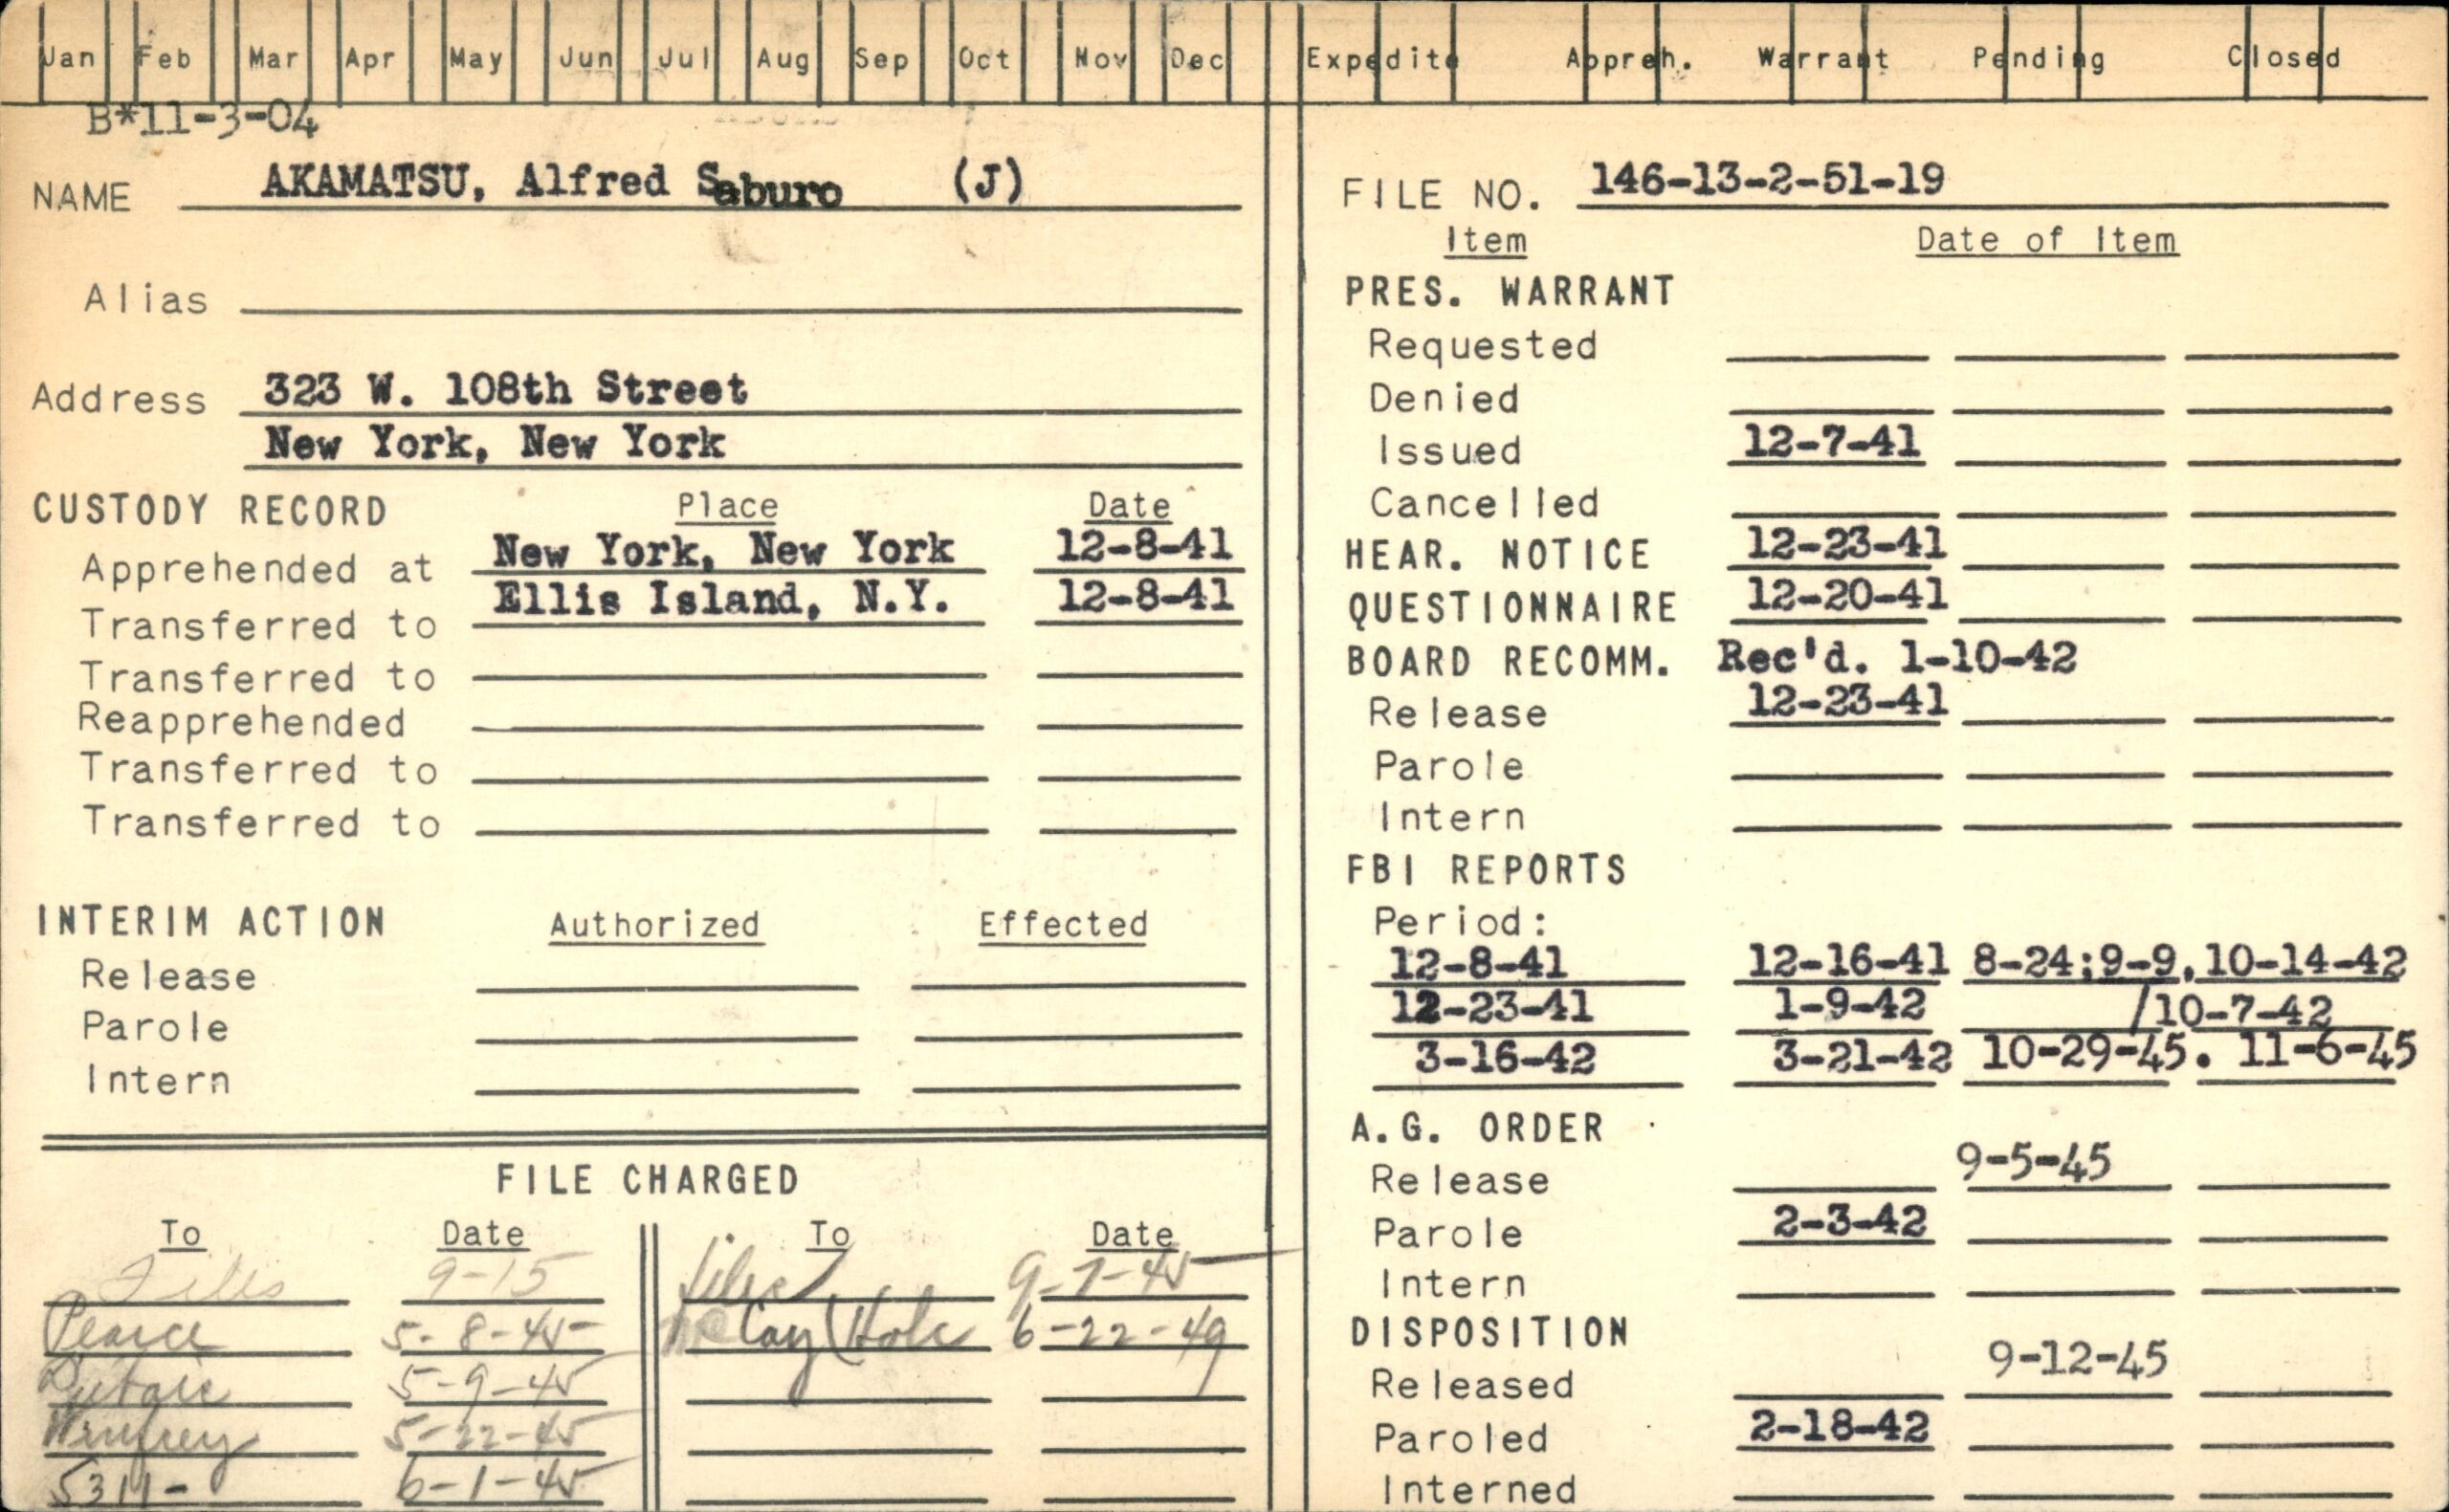 Jan Feb Mar Apr May Jun Jul Aug Sep Oct Nov Dec Expedite Appreh. Warrant Pending Closed
B*11-3-04
NAME AKAMATSU, Alfred Saburo (J)
Alias
Address 323 W. 108th Street
New York, New York
CUSTODY RECORD Place Date
Apprehended at New York, New York 12-8-41
Transferred to Ellis Island, N.Y. 12-8-41
Transferred to
Reapprehended
Transferred to
Transferred to
INTERIM ACTION Authorized Effected
Release
Parole
Intern
FILE CHARGED
To Date To Date
Files 9-15 files 9-7-45
Pearce 5-8-45 6-22-49
5-9-45
5-22-45
5311- 6-1-45
FILE NO. 146-13-2-51-19
Item Date of Item
PRES. WARRANT
Requested
Denied
Issued 12-7-41
Cancelled
HEAR. NOTICE 12-23-41
QUESTIONNAIRE 12-20-41
BOARD RECOMM. Rec'd. 1-10-42
Release 12-23-41
Parole
Intern
FBI REPORTS
Period:
12-8-41 12-16-41 8-24;9-9,10-14-42
12-23-41 1-9-42 /10-7-42
3-16-42 3-21-42 10-29-45. 11-6-45
A.G. ORDER
Release 9-5-45
Parole 2-3-42
Intern
DISPOSITION
Released 9-12-45
Paroled 2-18-42
Interned